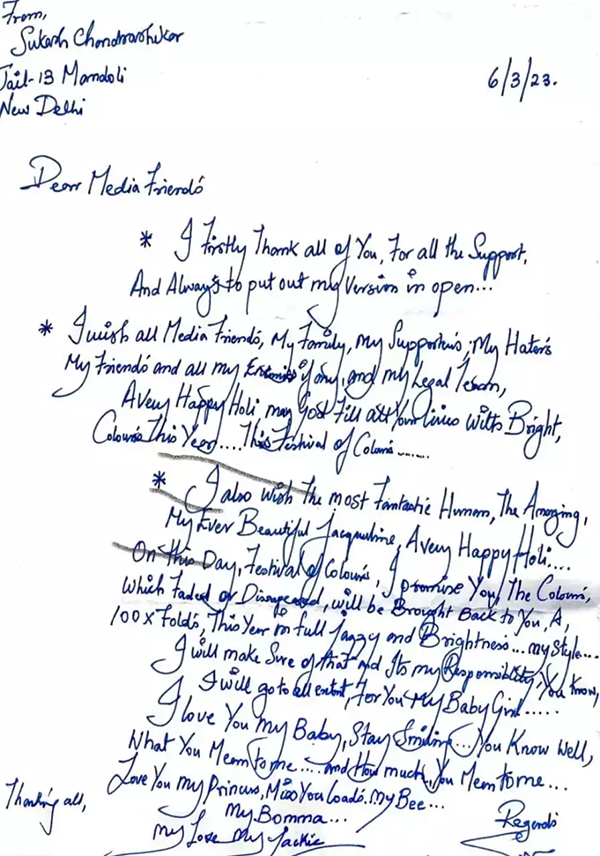 From,
Sukash Chandrashekar
Jail-13 Mandoli
New Delhi
6/3/23.
Dear Media Friends
* I Firstly Thank all of You, For all the Support,
And Always to put out my Version in open...
* I wish all Media Friends, My Family, My Supporters, My Haters
My Friends and all my Enemies if any, and my Legal Team,
A Very Happy Holi may God Fill all Your Lives with Bright,
Colours This Year.... This Festival of Colours.......
* I also wish The most Fantastic Human, The Amazing,
My Ever Beautiful Jacqueline, A very Happy Holi....
On This Day, Festival of Colours, I promise You, The Colours,
Which Faded or Disappeared, will be Brought Back to You, A,
100X Folds, This Year in full Jazzy and Brightness... my style...
I will make Sure of that and Its my Responsibility, You Know,
I will go to all extent, For You My Baby Girl.....
I love You my Baby, Stay Smiling... You Know Well,
What You Mean to me.... and How much You Mean to me...
Love You my Princess, Miss You Loads, My Bee...
My Bomma...
My Love My Jackie
Thanking all,
Regards